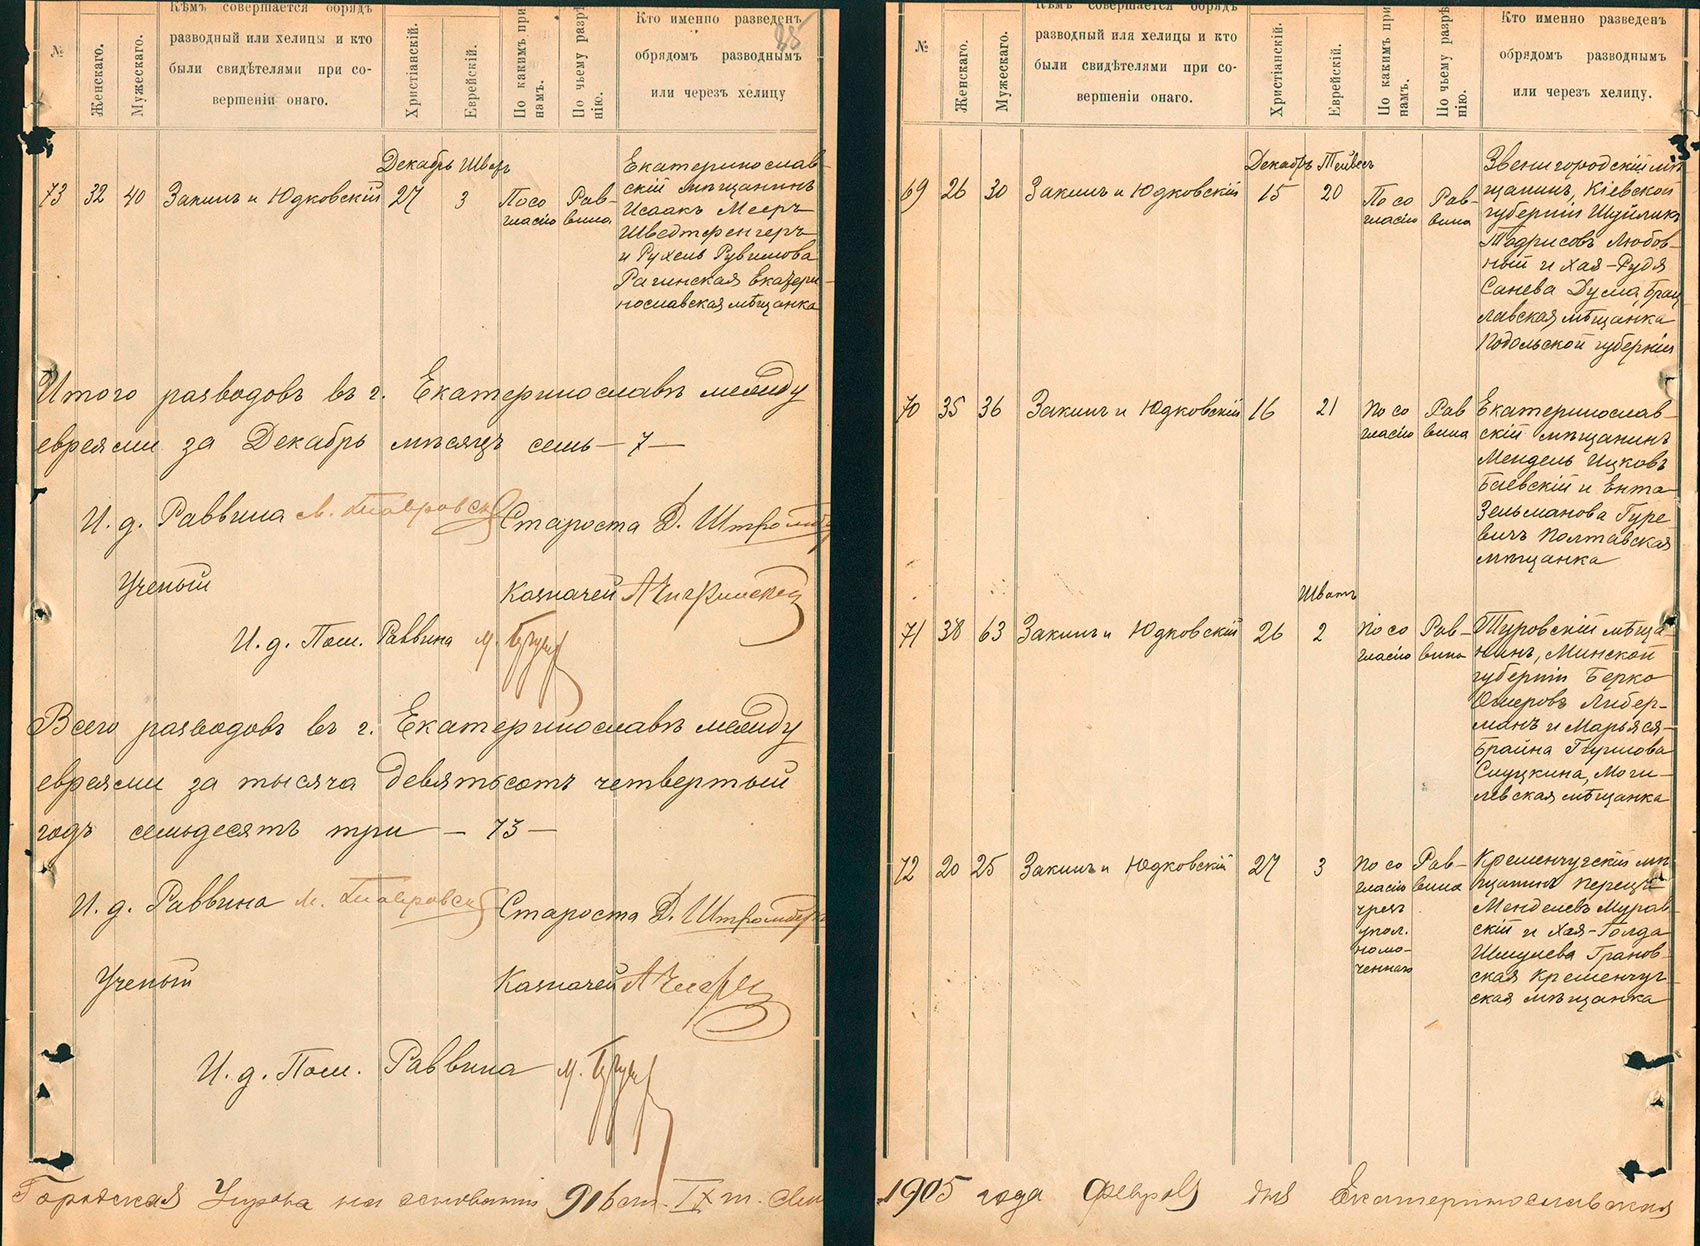 №
Женскаго.
Мужескаго.
Кѣмъ совершается обрядъ
разводный или хелицы и кто
были свидѣтелями при со-
вершеніи онаго.
Христіанскій.
Еврейскій.
По какимъ при
намъ.
По чьему разрѣ
нію.
Кто именно разведенъ
обрядомъ разводнымъ
или через хелицу
Декабрь Шват
73 32 40 Закинъ и Юдковскій 27 3
По со
гласію
Рав-
вина
Екатеринослав-
скій мѣщанинъ
Исаакъ Мееръ
Шведтфенгеръ
и Рухель Рувимова
Рагинская Екатери-
нославская мѣщанка
Итого разводовъ въ г. Екатеринославѣ между
евреями за Декабрь мѣсяцъ семь — 7 —
И. д. Раввина
Староста Д. Штромберг
Ученый
Казначей
И. д. Пом. Раввина
Всего разводовъ въ г. Екатеринославѣ между
евреями за тысяча девятьсотъ четвертый
годъ семьдесятъ три — 73 —
И. д. Раввина
Староста Д. Штромберг
Ученый
Казначей
И. д. Пом. Раввина
Городская Управа на основаніи 916 ст. IX т.
№
Женскаго.
Мужескаго.
Кѣмъ совершается обрядъ
разводный или хелицы и кто
были свидѣтелями при со-
вершеніи онаго.
Христіанскій.
Еврейскій.
По какимъ при
намъ.
По чьему разрѣ
нію.
Кто именно разведенъ
обрядомъ разводнымъ
или через хелицу.
Декабрь Тейвесъ
69 26 30 Закинъ и Юдковскій 15 20
По со
гласію
Рав-
вина
Звенигородскій мѣ
щанинъ, Кіевской
губерніи Шуйликъ
Тодрисовъ Любов-
ный и Хая-Рудя
Санева Дума, Брац
лавская мѣщанка
Подольской губерніи
70 35 36 Закинъ и Юдковскій 16 21
По со
гласію
Рав
вина
Екатеринослав-
скій мѣщанинъ
Мендель Ицковъ
Баевскій и Ента
Зельманова Гуре-
вичъ Полтавская
мѣщанка
Шватъ
71 38 63 Закинъ и Юдковскій 26 2
По со
гласію
Рав-
вина
Туровскій мѣща-
нинъ, Минской
губерніи Берко
Ошеровъ Либер-
манъ и Марьяся-
Брайна
Слуцкина, Моги-
левская мѣщанка
72 20 25 Закинъ и Юдковскій 27 3
По со
гласію
чрезъ
упол.
номо-
ченнаго
Рав-
вина
Кременчугскій мѣ
щанинъ Перецъ
Менделевъ Мурав
скій и Хая-Голда
Шмулева Гранов-
ская Кременчуг-
ская мѣщанка
1905 года Февраля дня Екатеринославская